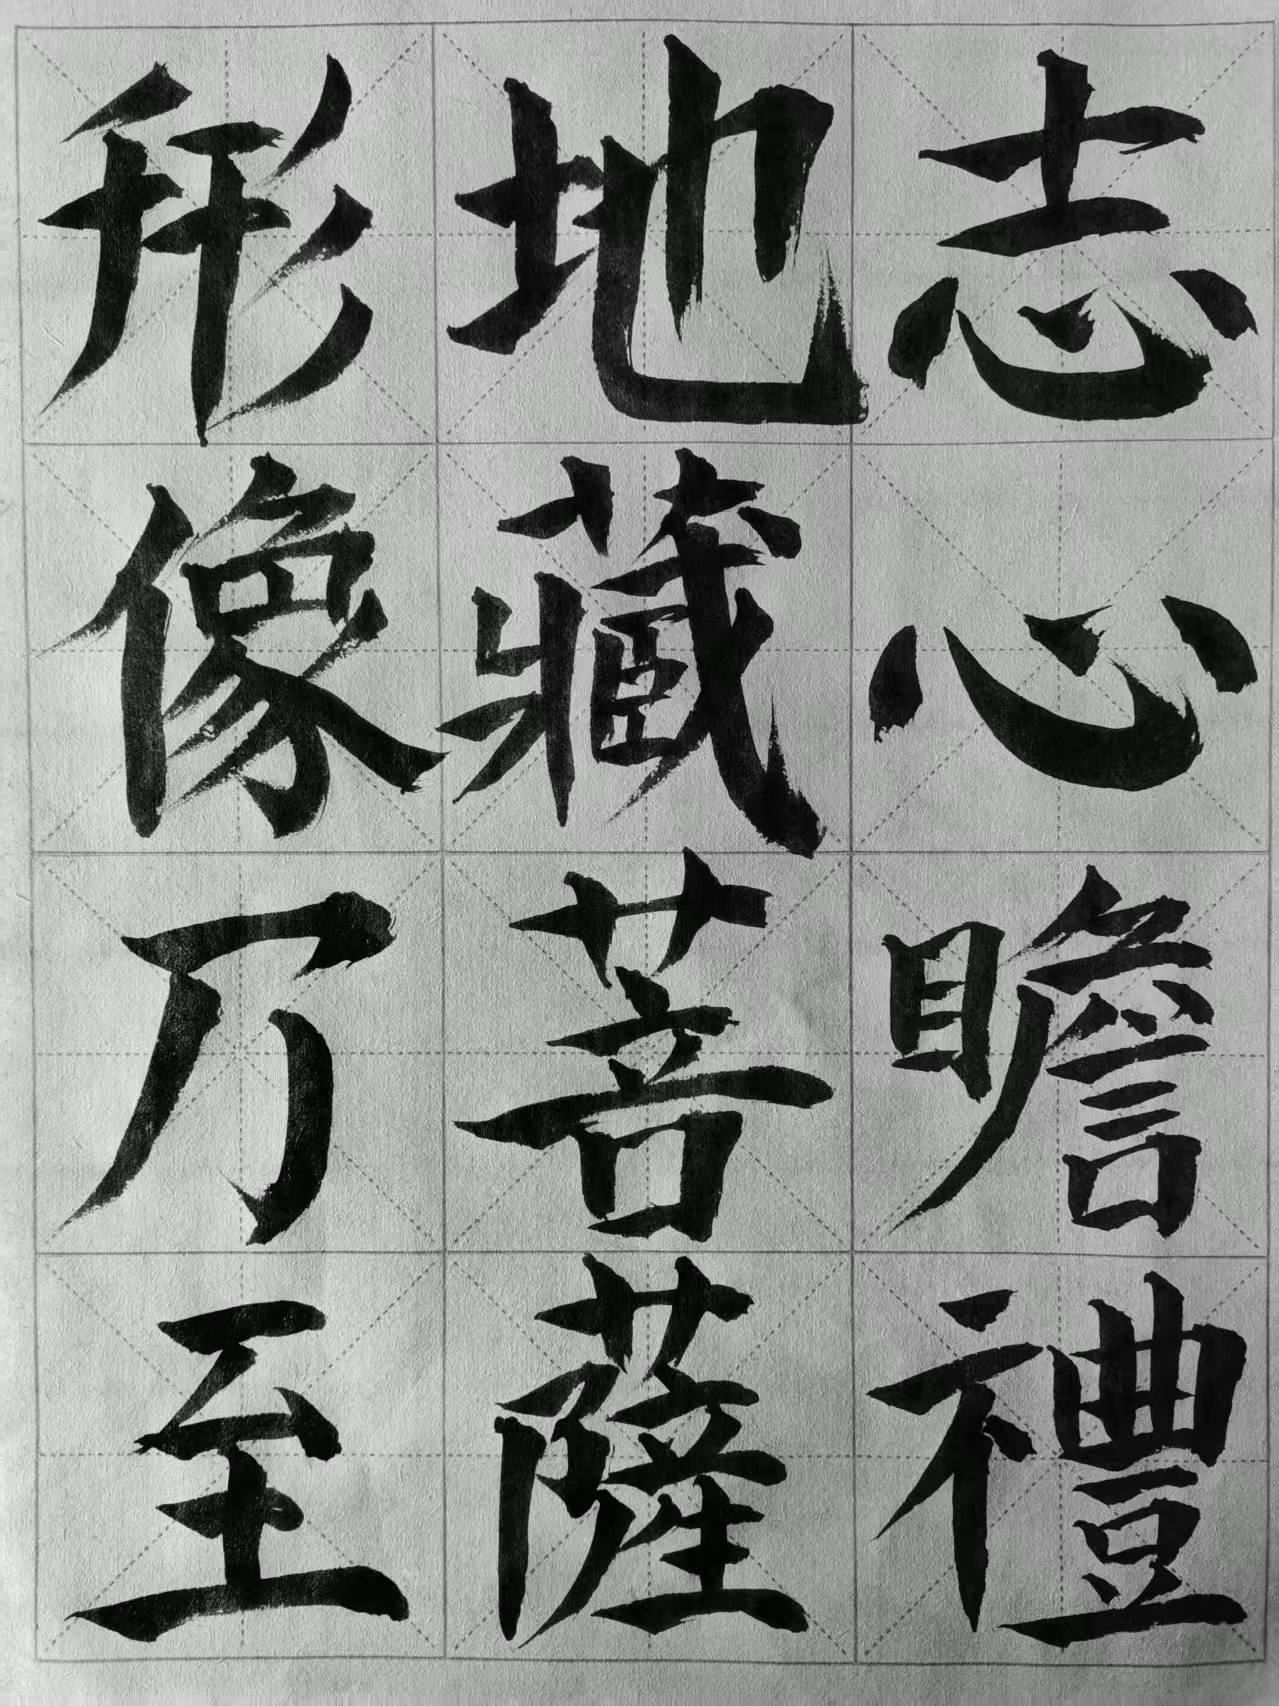 志心瞻禮
地藏菩薩
形像万至